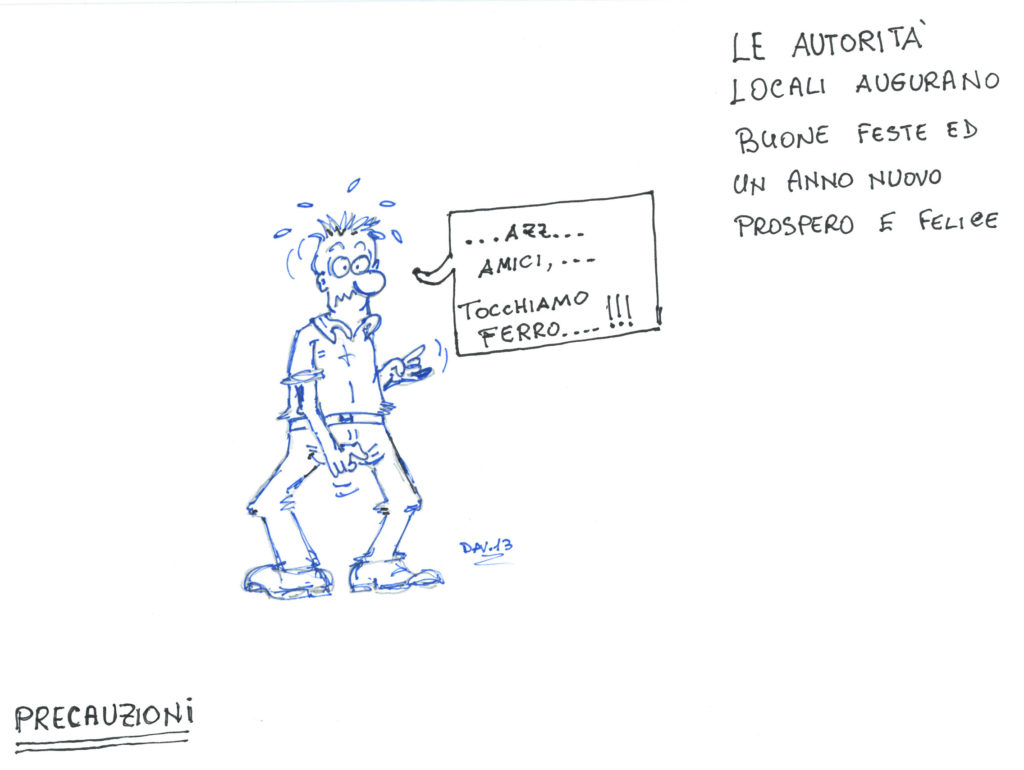 LE AUTORITÀ
LOCALI AUGURANO
BUONE FESTE ED
UN ANNO NUOVO
PROSPERO E FELICE
...AZZ...
AMICI,...
TOCCHIAMO
FERRO....!!!
DAV.13
PRECAUZIONI